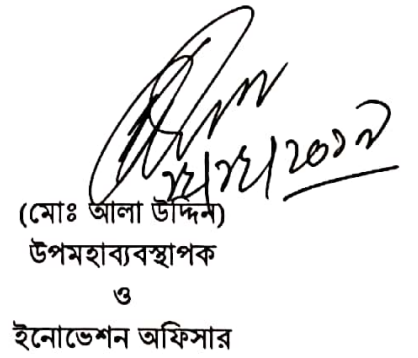 (মোঃ আলা উদ্দিন)
উপমহাব্যবস্থাপক
ও
ইনোভেশন অফিসার